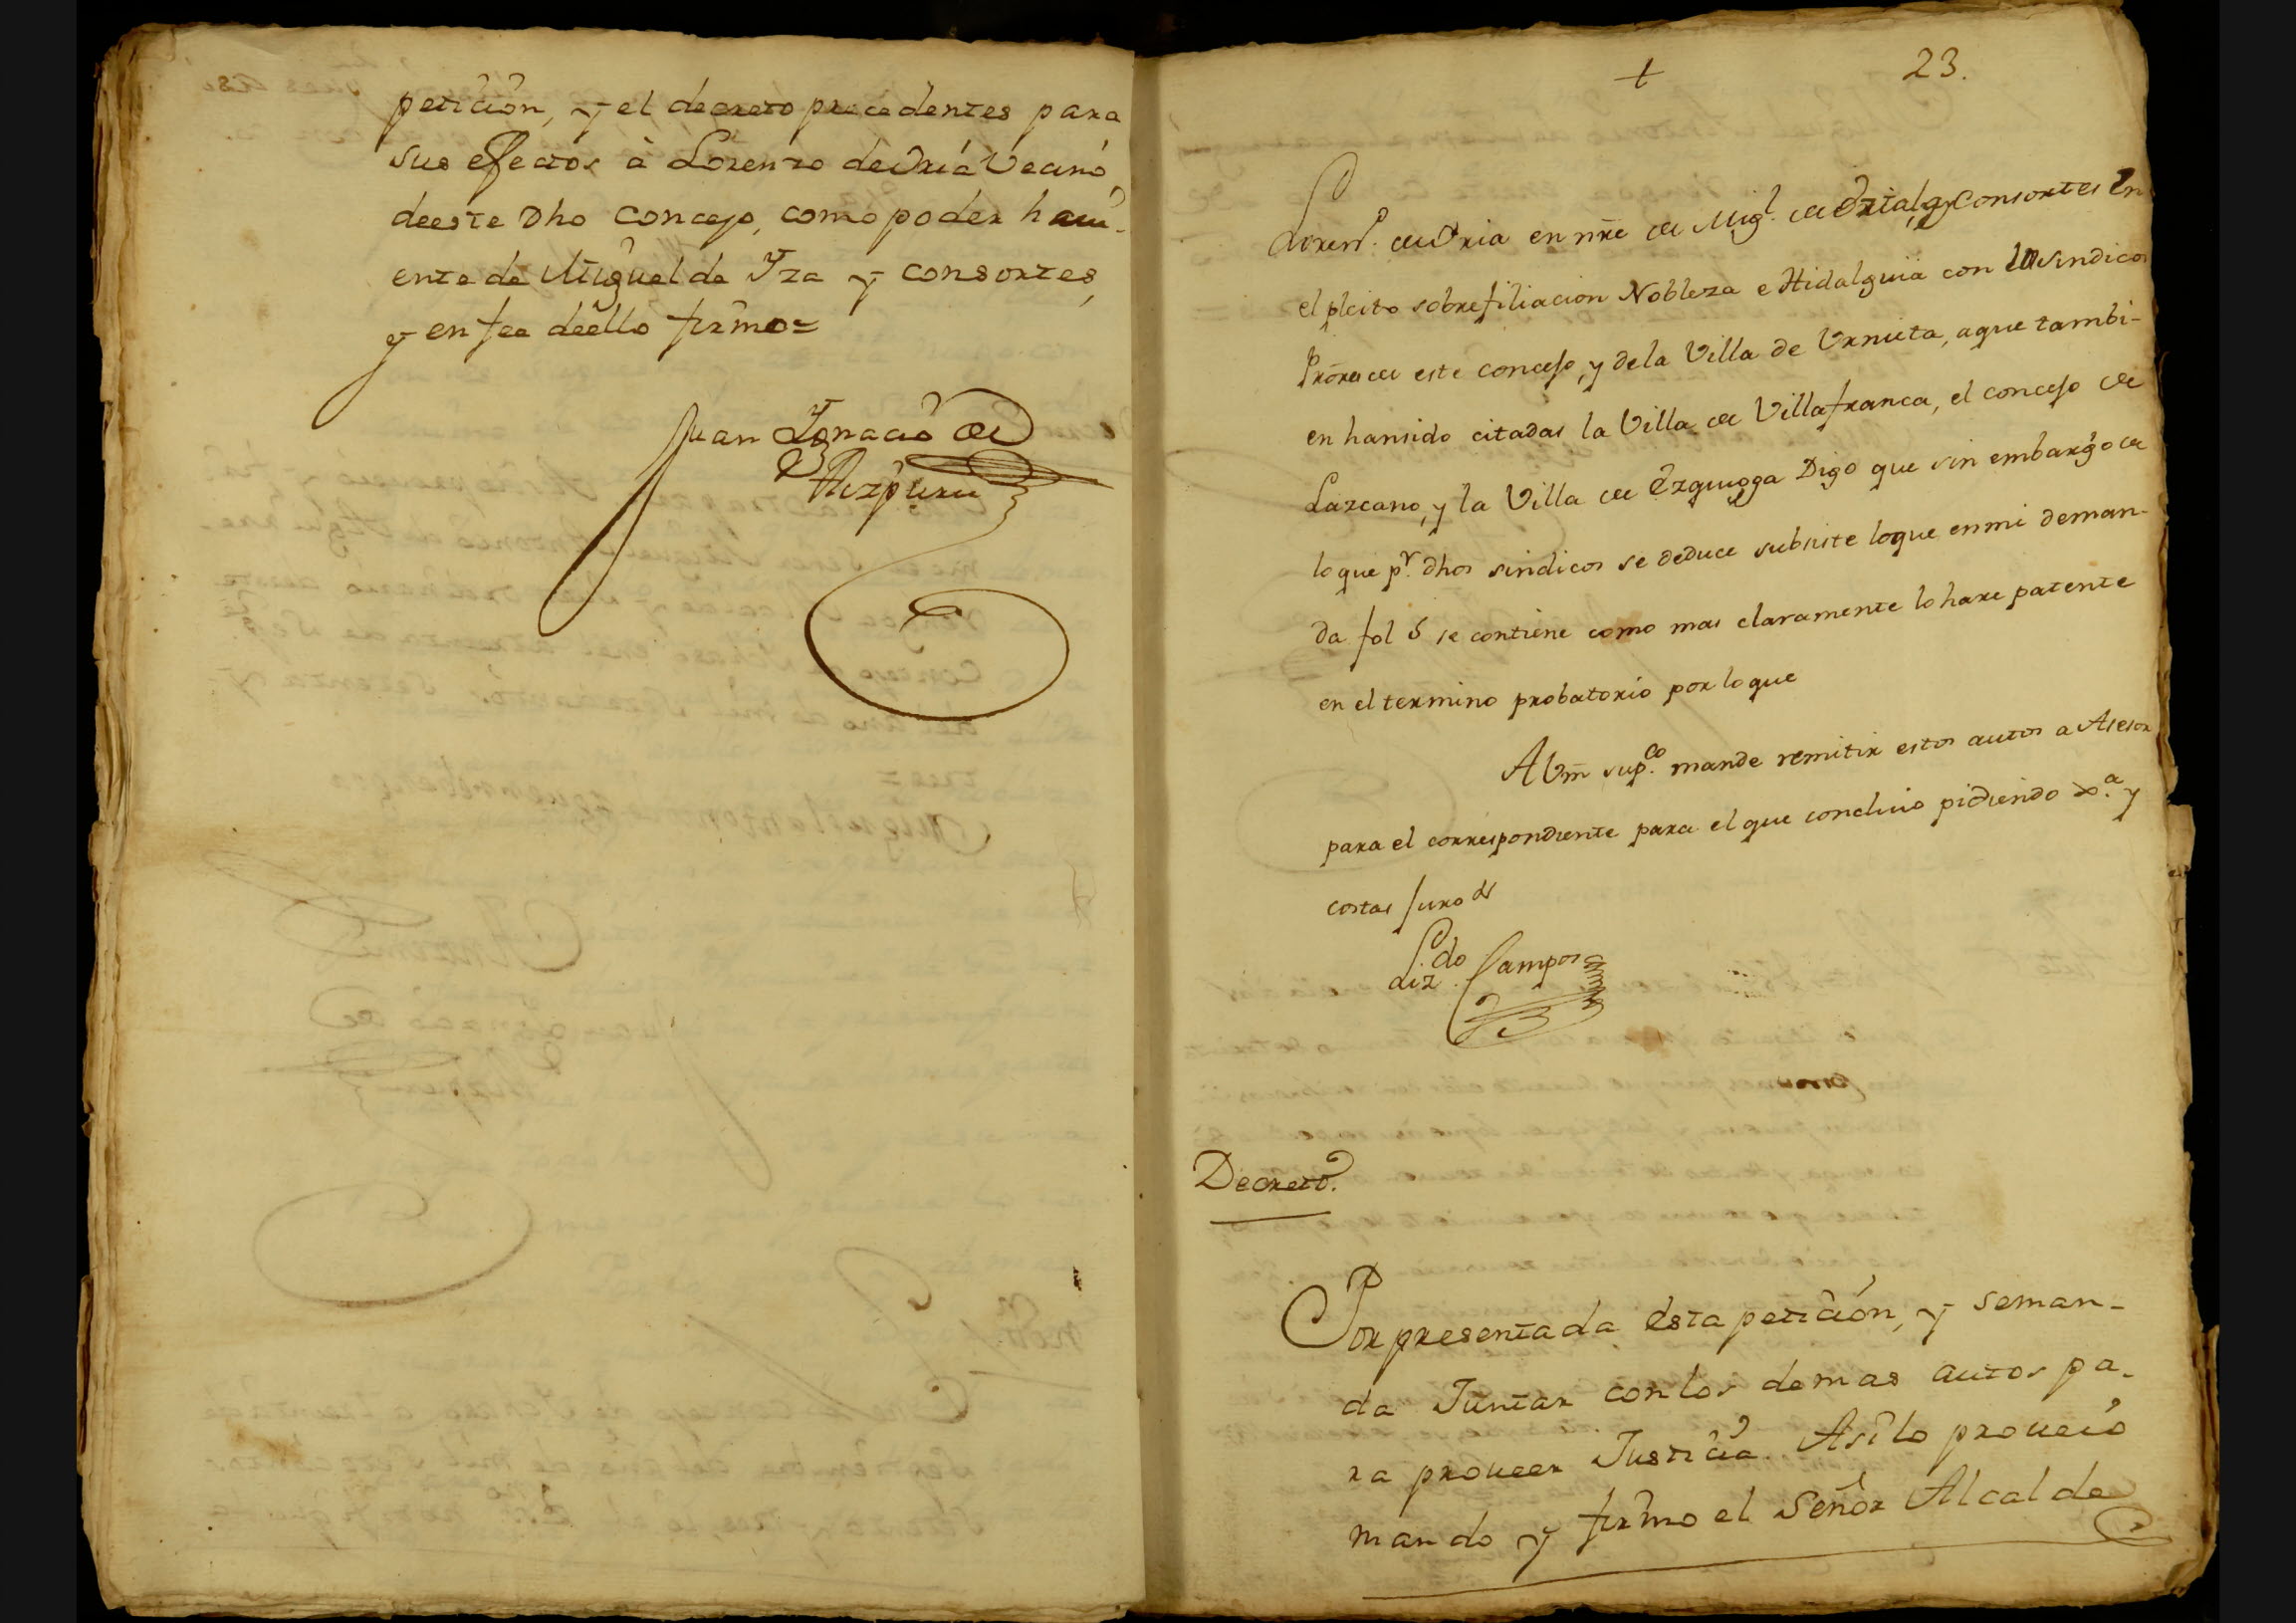 petición, y el decreto precedentes para
sus efectos à Lorenzo de Vria Vecino
de este dho Concejo, como poder haui-
ente de Miguel de Yza y consortes,
y en fee de ello firmo=
Juan Ygnacio de
Aizpuru
+ 23.
Lorenº. de Vria en nre de Migl. de Yza y Consortes en
el pleito sobre filiacion Nobleza e Hidalguia con los sindicos
Prôres de este concejo, y de la Villa de Vrnieta, a que tambi-
en han sido citadas la Villa de Villafranca, el concejo de
Lazcano, y la Villa de Ezquioga Digo que sin embargo de
lo que pr. dhos sindicos se deduce subsiste lo que en mi deman-
da fol 5 se contiene como mas claramente lo hare patente
en el termino probatorio por lo que
A Vm supco. mande remitir estos autos a Asesor
para el correspondiente para el que concluio pidiendo xa. y
costas juro &
Lizdo. Campos
Decreto.
Por presentada esta petición, y se man-
da Juntar con los demas autos pa-
ra proueer Justicia. Asi lo proueió
mando y firmo el Señor Alcalde